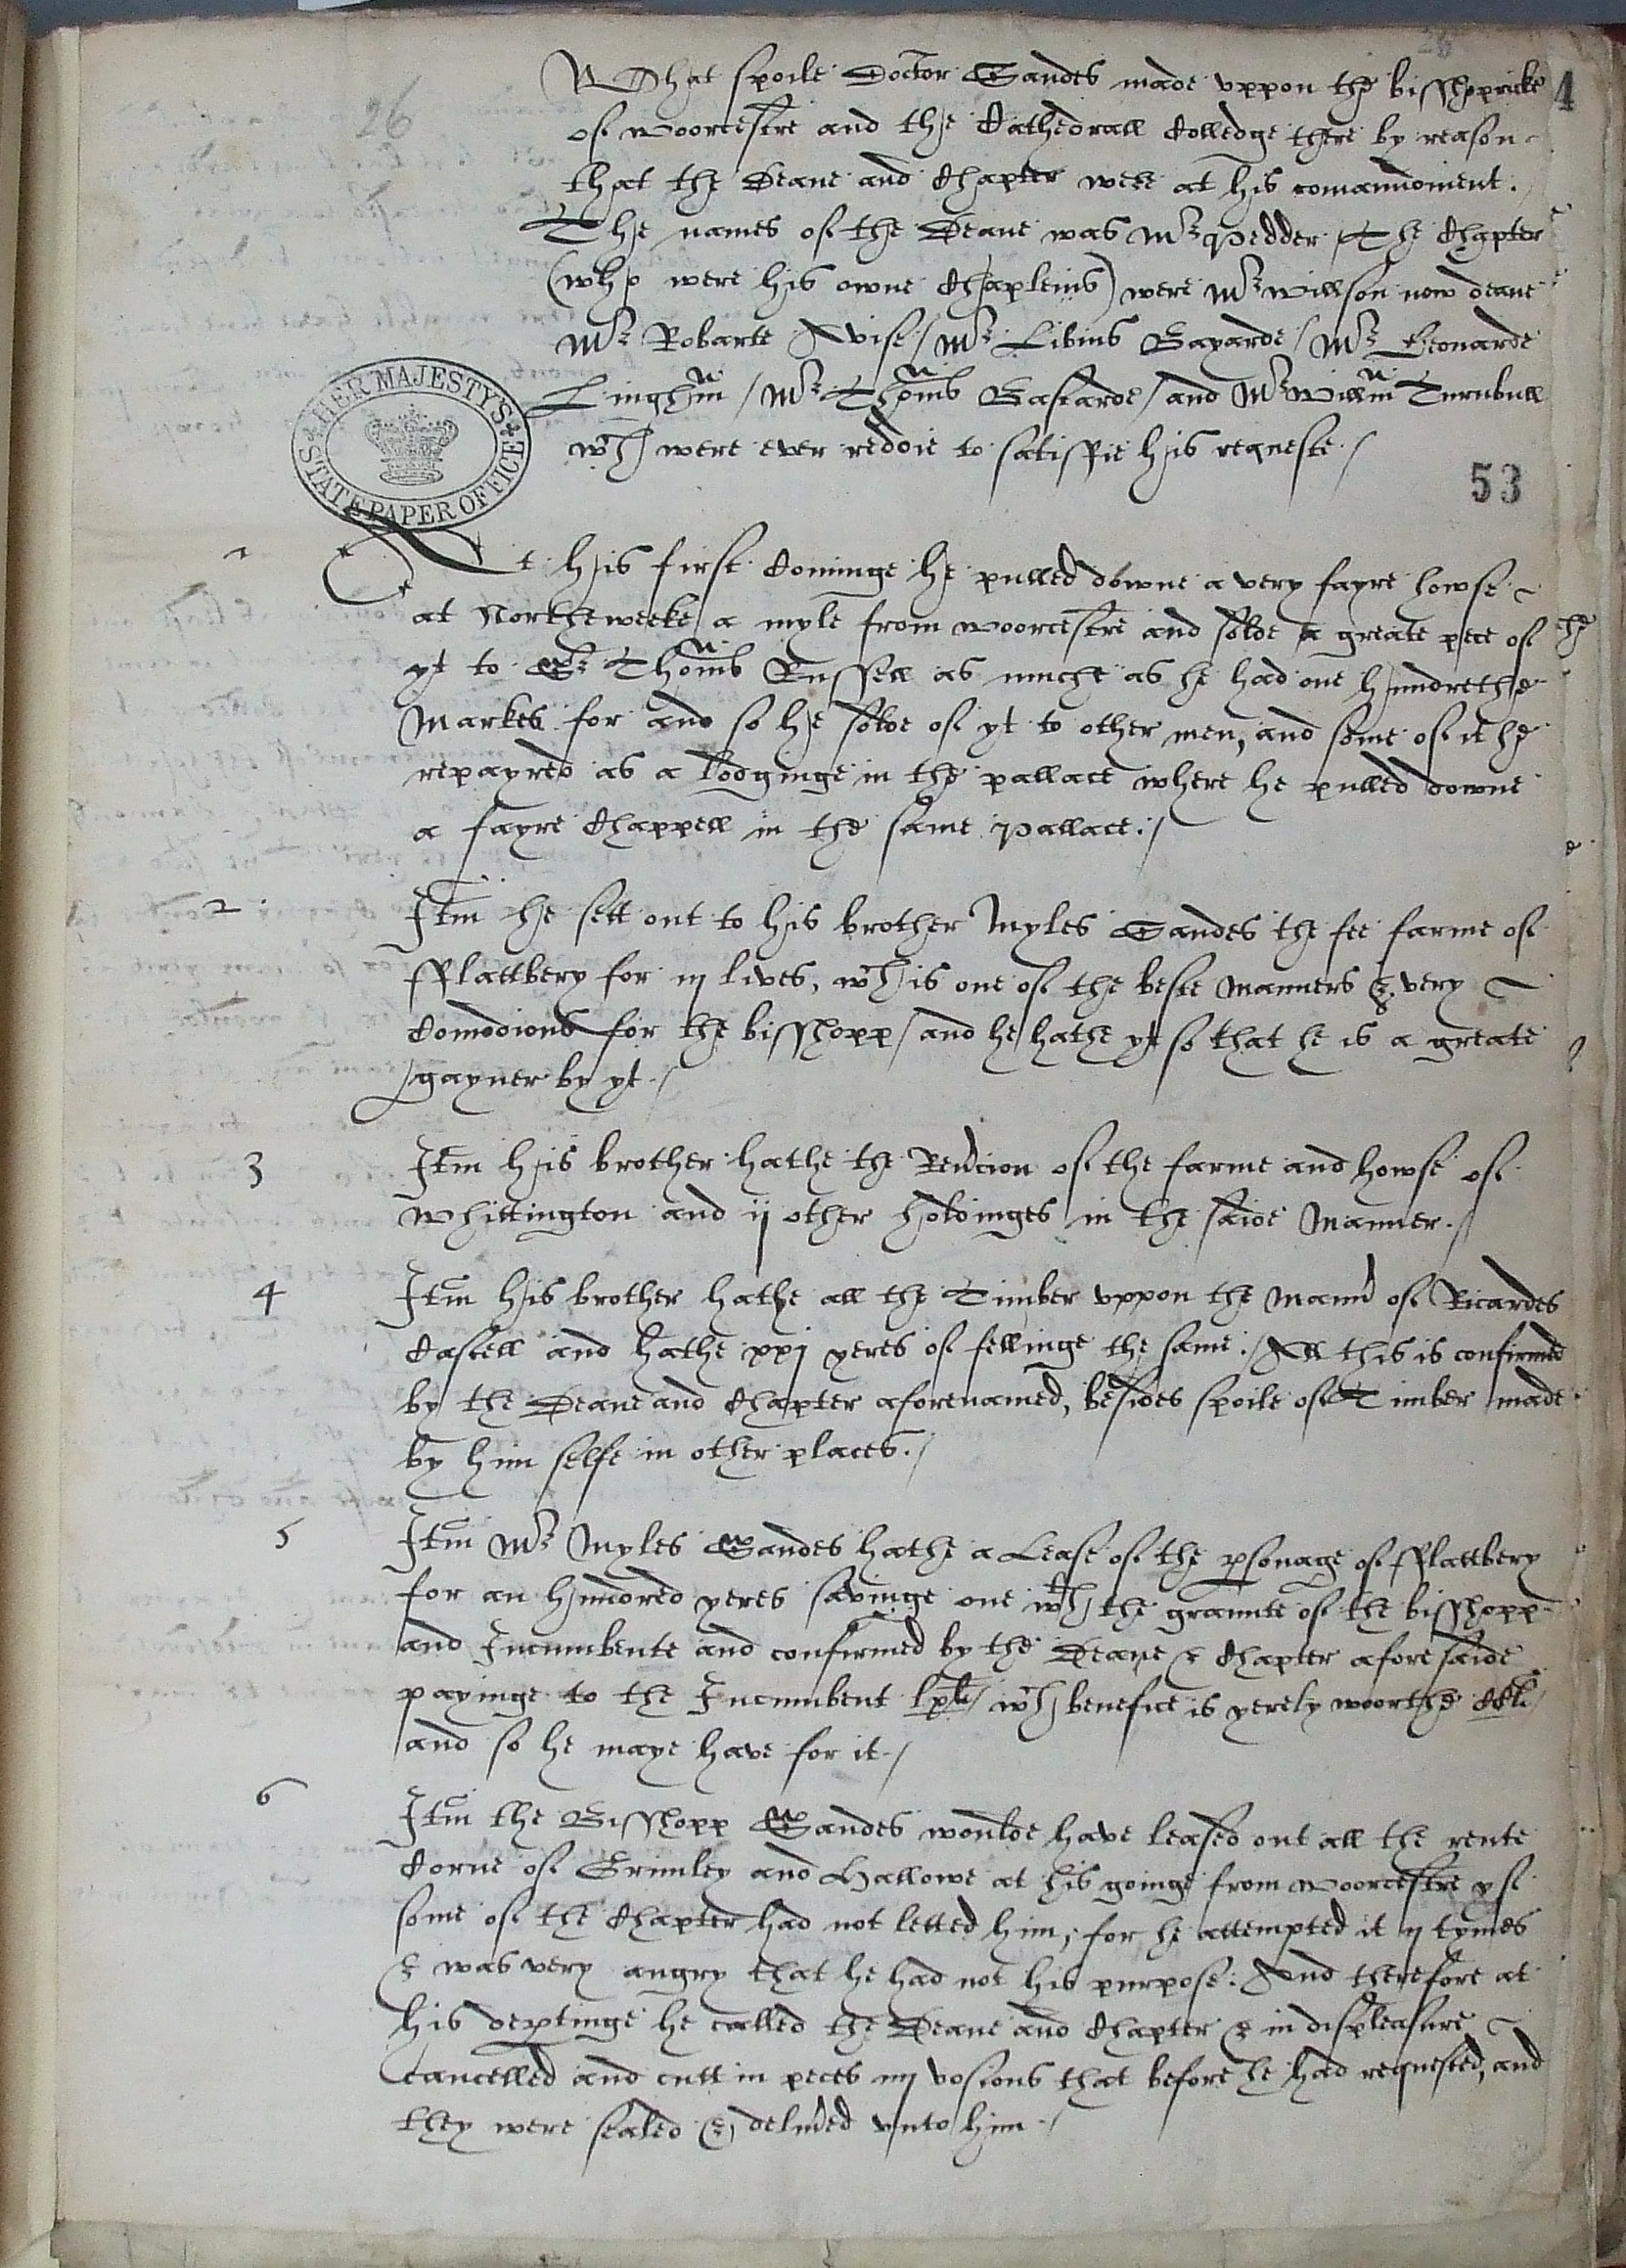 26
26
4
What spoile Doctor Sandes made uppon the bisshopricke
of woorcestre and the Cathedrall Colledge there by reason
that the Deane and Chapter were at his comaundment.
The names of the Deane was Mr Pedder / The Chapter
(who were his owne Chapleins) were Mr willson now deane
Mr Robarte Avise / Mr Libius Bayarde / Mr Leonarde
Linghm / Mr Thoms Bastarde / and Mr Willm Turnbull
wch were ever reddie to satisffie his requeste /
HER MAJESTY'S STATE PAPER OFFICE
53
1 At his first Cominge he pulled downe a very fayre howse
at Northeweeke a myle from woorcestre and solde a greate pece of
yt to Sr Thoms Russell as muche as he had one hundrethe
Markes for and so he solde of yt to other men, and some of it he
repayred as a lodginge in the pallace where he pulled downe
a fayre Chappell in the same pallace. /
2 Itm he sett out to his brother Myles Sandes the fee farme of
fflattbery for iij lives, wch is one of the beste Manners & very
Comodious for the bisshopp / and he hathe yt so that he is a greate
gayner by yt. /
3 Itm his brother hathe the Revercion of the farme and howse of
whittington and ij other holdinges in the saide Manner. /
4 Itm his brother hathe all the Timber uppon the Mannor of Ricardes
Castell and hathe xxj yeres of fellinge the same. / All this is confirmed
by the Deane and Chapter aforenamed, besides spoile of Timber made
by him selfe in other places. /
5 Itm Mr Myles Sandes hathe a Lease of the psonage of fflattbery
for an hundred yeres savinge one wth the graunte of the bisshopp
and Incumbente and confirmed by the Deane & Chapter aforesaide
payinge to the Incumbent lxli / wch benefice is yerely woorthe CCli /
and so he maye have for it. /
6 Itm the Bisshopp Sandes woulde have leased out all the rente
Corne of Grimley and Hallowe at his goinge from woorcestre yf
some of the Chapter had not letted him; for he attempted it ij tymes
& was very angry that he had not his purpose. And therefore at
his deptinge he called the Deane and Chapter & in displeasure
cancelled and cutt in peces iiij vosions that before he had requested, and
they were sealed & delivred unto him. /